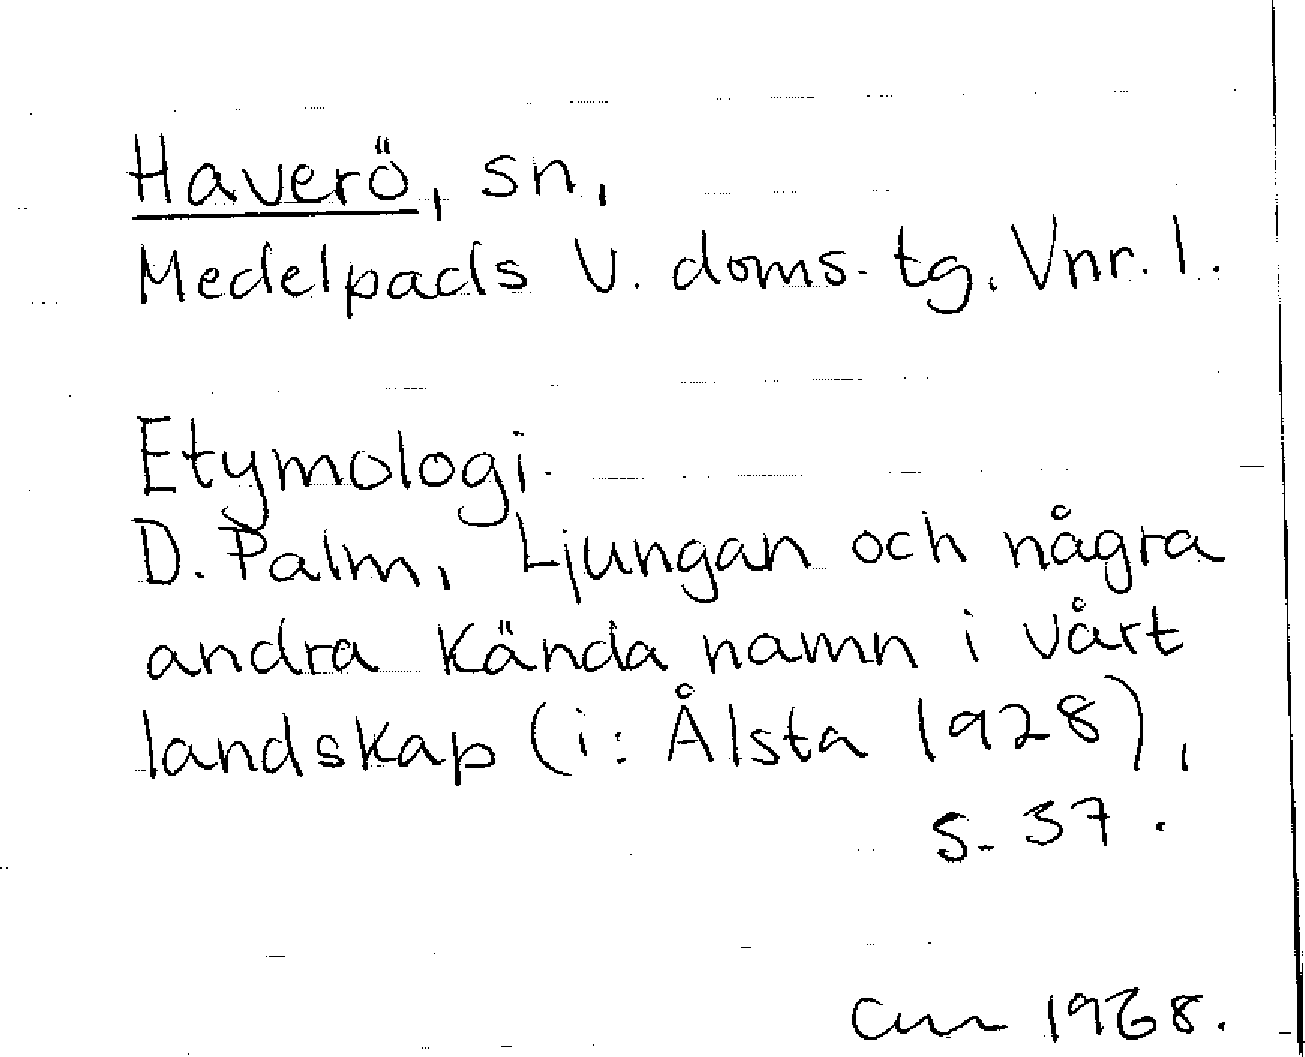 Haverö, sn,
Medelpads V. doms. tg. Vnr. 1.
Etymologi.
D. Palm, Ljungan och några
andra kända namn i vårt
landskap (i: Ålsta 1928),
s. 37.
1968.